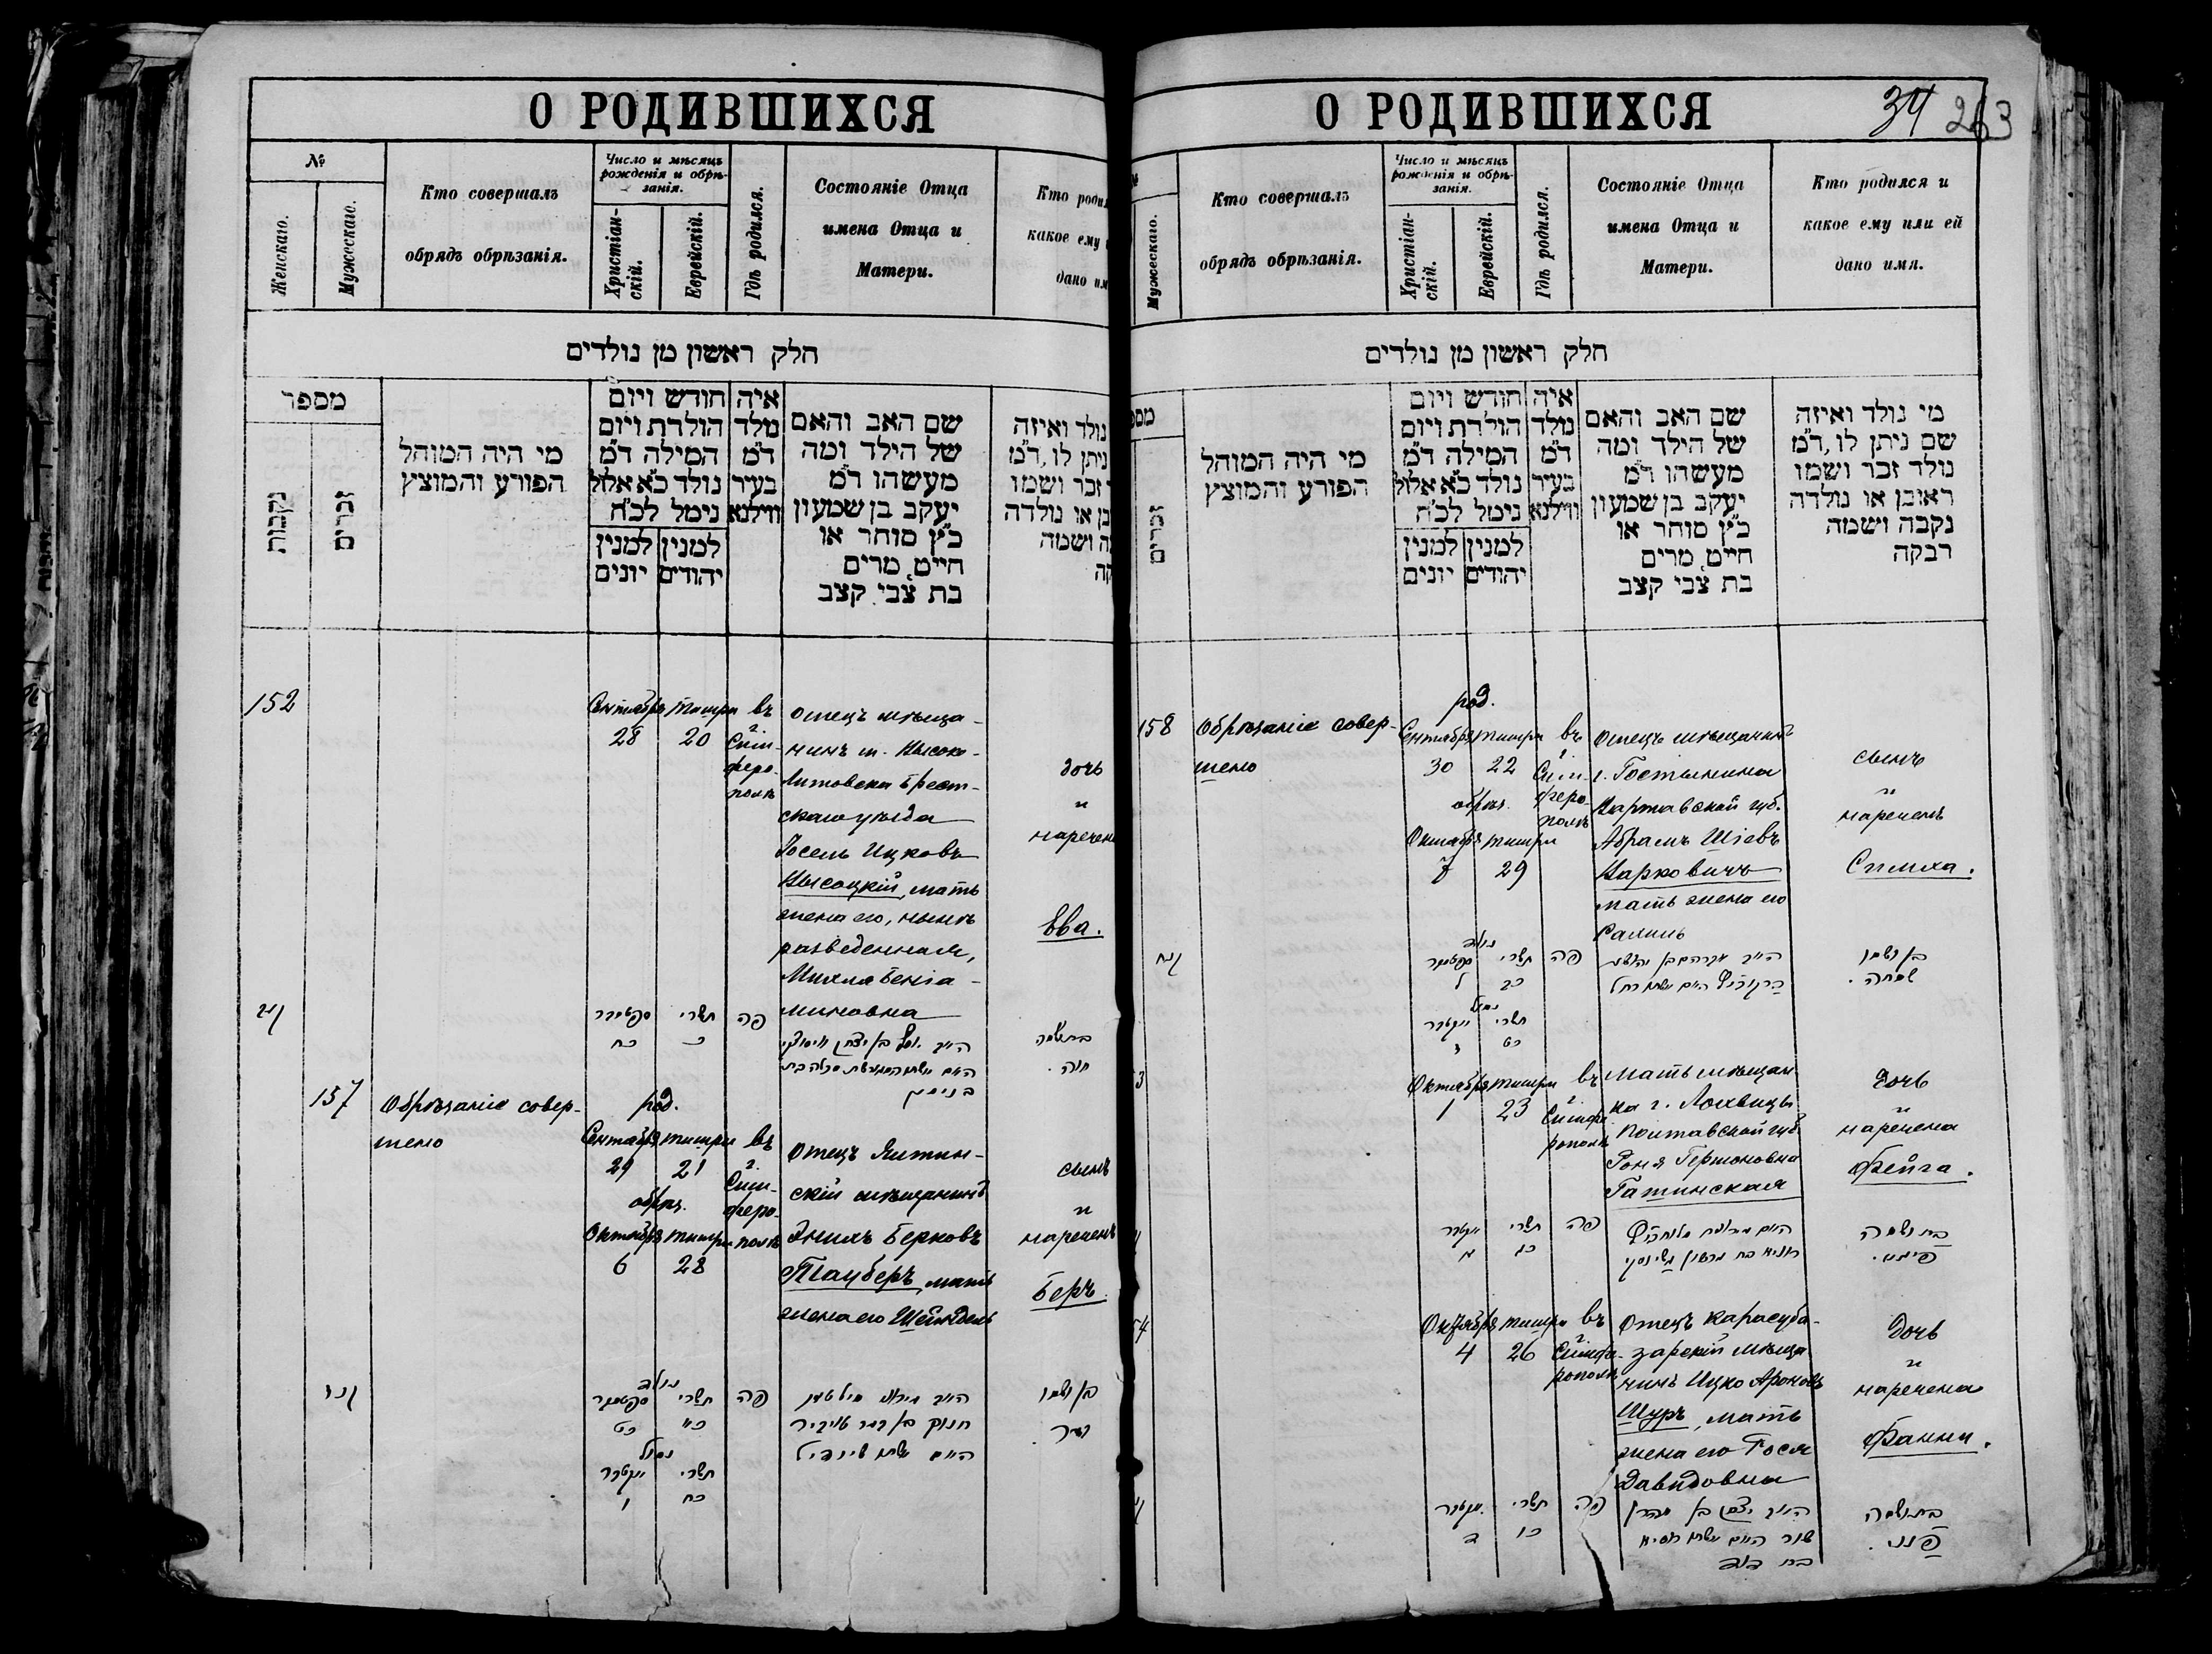 О РОДИВШИХСЯ
№
Женскаго.
Мужескаго.
Кто совершалъ
обрядъ обрѣзанія.
Число и мѣсяцъ
рожденія и обрѣ-
занія.
Христіан-
скій.
Еврейскій.
Гдѣ родился.
Состояніе Отца
имена Отца и
Матери.
Кто
какое ему
дано
חלק ראשון מן נולדים
מספר
נקבות
זכרים
מי היה המוהל
הפורע והמוצץ
חודש ויום
הולדת ויום
המילה ד״מ
נולד כ״א אלול
נימל לכ״ח
למנין יונים
למנין יהודים
איה
מלד
ד״מ
בעיר
ווילנא
שם האב והאם
של הילד ומה
מעשהו ד״מ
יעקב בן שמעון
כ״ץ סוחר או
חייט, מרים
בת צבי קצב
נולד ואיזה
ניתן לו, ד״מ
זכר ושמו
או נולדה
ושמה
152
Сентябрь 28
Тишри 20
въ
г.
Сим-
феро-
полѣ
отецъ мѣща-
нинъ м. Высоко-
Литовска Брест-
скаго уѣзда
Іосель Ицковъ
Высоцкій, мать
жена его, нынѣ
разведенная,
Михля Бенія-
миновна
дочь
и
наречена
Ева.
ספטמבר כח
תשרי כ
פה
157
Обрѣзаніе совер-
шено
род.
Сентябрь 29
тишри 21
обрѣз.
Октябрь 6
тишри 28
въ
г.
Сим-
феро-
полѣ
Отецъ Ялтин-
скій мѣщанинъ
Энихъ Берковъ
Тауберъ, мать
жена его Шейндель
сынъ
и
нареченъ
Беръ.
נולד
ספטמבר כט
תשרי כא
נמול
תשרי כח
ו
פה
בן ושמו
О РОДИВШИХСЯ
34 263
Мужескаго.
Кто совершалъ
обрядъ обрѣзанія.
Число и мѣсяцъ
рожденія и обрѣ-
занія.
Христіан-
скій.
Еврейскій.
Гдѣ родился.
Состояніе Отца
имена Отца и
Матери.
Кто родился и
какое ему или ей
дано имя.
חלק ראשון מן נולדים
זכרים
מי היה המוהל
הפורע והמוצץ
חודש ויום
הולדת ויום
המילה ד״מ
נולד כ״א אלול
נימל לכ״ח
למנין יונים
למנין יהודים
איה
מלד
ד״מ
בעיר
ווילנא
שם האב והאם
של הילד ומה
מעשהו ד״מ
יעקב בן שמעון
כ״ץ סוחר או
חייט, מרים
בת צבי קצב
מי נולד ואיזה
שם ניתן לו, ד״מ
נולד זכר ושמו
ראובן או נולדה
נקבה ושמה
רבקה
158
Обрѣзаніе совер-
шено
род.
Сентябрь 30
тишри 22
обрѣз.
Октябрь 7
тишри 29
въ
г.
Сим-
феро-
полѣ
Отецъ мѣщанинъ
г. Гостынина
Варшавской губ.
Абрамъ Шіевъ
Варковичъ
мать жена его
сынъ
и
нареченъ
Симха.
קנח
נולד
ספטמבר ל
תשרי כב
נמול
תשרי כט
פה
בן ושמו
שמחה.
3
Октябрь 1
тишри 23
въ
г.
Симфе-
рополѣ
Мать мѣщан-
ка г. Лохвицы
Полтавской губ.
Роня Гершоновна
Гатинская
дочь
и
наречена
Фейга.
תשרי כג
פה
בת ושמה
4
Октябрь 4
тишри 26
въ
г.
Симфе-
рополѣ
Отецъ Карасуба-
зарскій мѣща-
нинъ Ицко Ароновъ
Шуръ, мать
жена его Гося
Давидовна
дочь
и
наречена
Фанни.
תשרי כו
ד
פה
בת דוד
בת ושמה